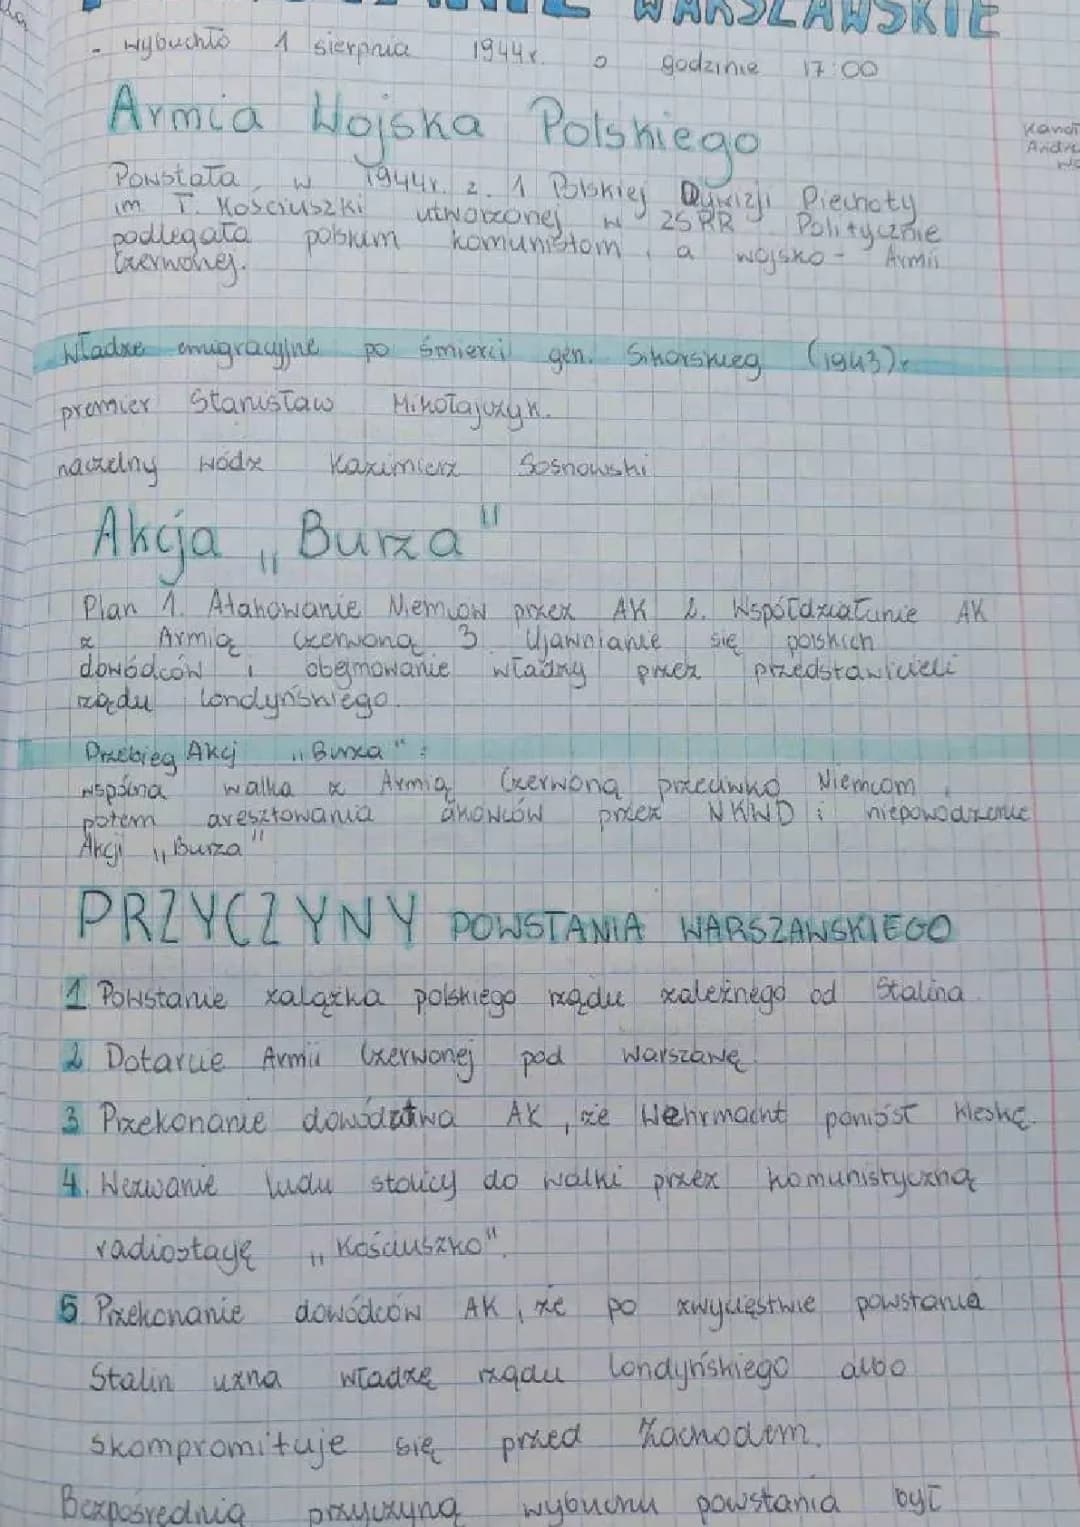 WARSZAWSKIE
- wybuchło 1 sierpnia 1944r. o godzinie 17:00
Armia Wojska Polskiego
Powstała w 1944r. z. 1 Polskiej Dywizji Piechoty
im T. Kościuszki utworzonej w ZSRR Politycznie
podlegała polskim komunistom, a wojsko - Armii
Czerwonej.
Władze emigracyjne po śmierci gen. Sikorskieg (1943)r
premier Stanisław Mikołajczyk.
naczelny wódz Kazimierz Sosnowski
Akcja „Burza"
Plan 1. Atakowanie Niemców przez AK 2. Współdziałanie AK
z Armią Czerwoną 3 Ujawnianie się polskich
dowódców i obejmowanie władzy przez przedstawicieli
rządu londyńskiego.
Przebieg Akcj „Burza":
wspólna walka z Armią Czerwoną przeciwko Niemcom,
potem aresztowania akowców przez NKWD i niepowodzenie
Akcji „Burza"
PRZYCZYNY POWSTANIA WARSZAWSKIEGO
1 Powstanie zalążka polskiego rządu zależnego od Stalina
2 Dotarcie Armii Czerwonej pod Warszawę.
3 Przekonanie dowództwa AK, że Wehrmacht poniósł klęskę.
4. Wezwanie ludu stolicy do walki przez komunistyczną
radiostację „Kościuszko".
5 Przekonanie dowódców AK, że po zwycięstwie powstania
Stalin uzna władzę rządu londyńskiego albo
skompromituje się przed Zachodem.
Bezpośrednią przyczyną wybuchu powstania był